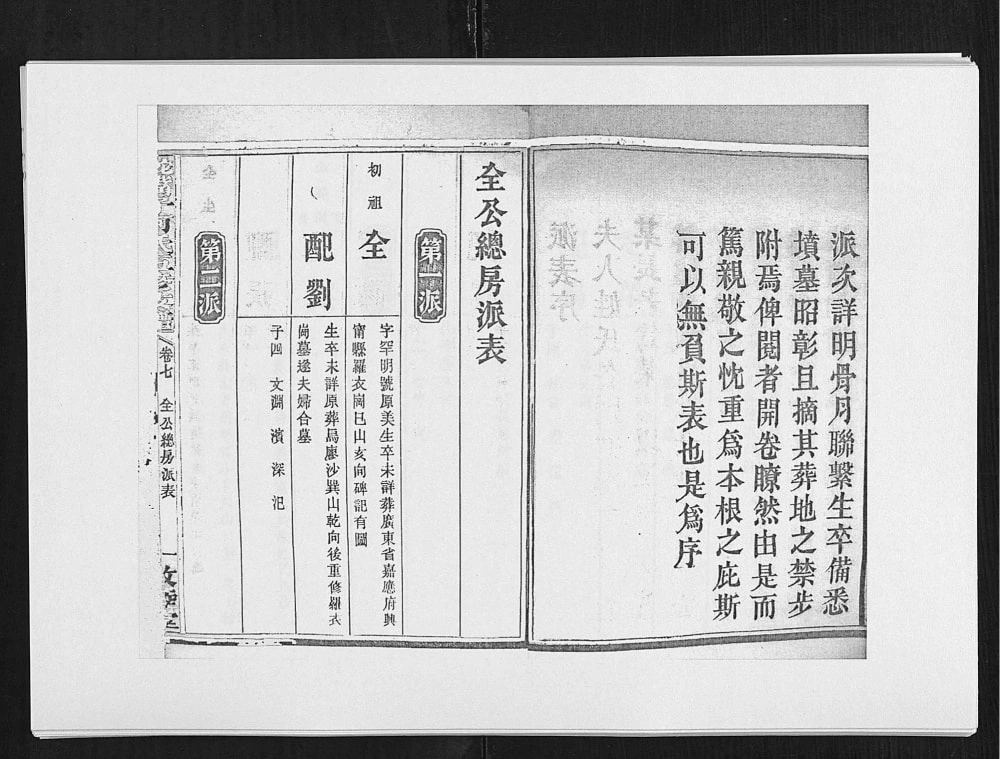 派次詳明骨月聯繫生卒備悉
墳墓昭彰且摘其葬地之禁步
附焉俾閱者開卷瞭然由是而
篤親敬之忱重爲本根之庇斯
可以無負斯表也是爲序
全公總房派表
第一派
初祖 全
字罕明號原美生卒未詳葬廣東省嘉應府興
甯縣羅衣崗巳山亥向碑記有圖
配劉
生卒未詳原葬馬廖沙巽山乾向後重修羅衣
崗墓遂夫婦合墓
子四 文淵 濱 深 汜
第二派
卷七 全公總房派表 一